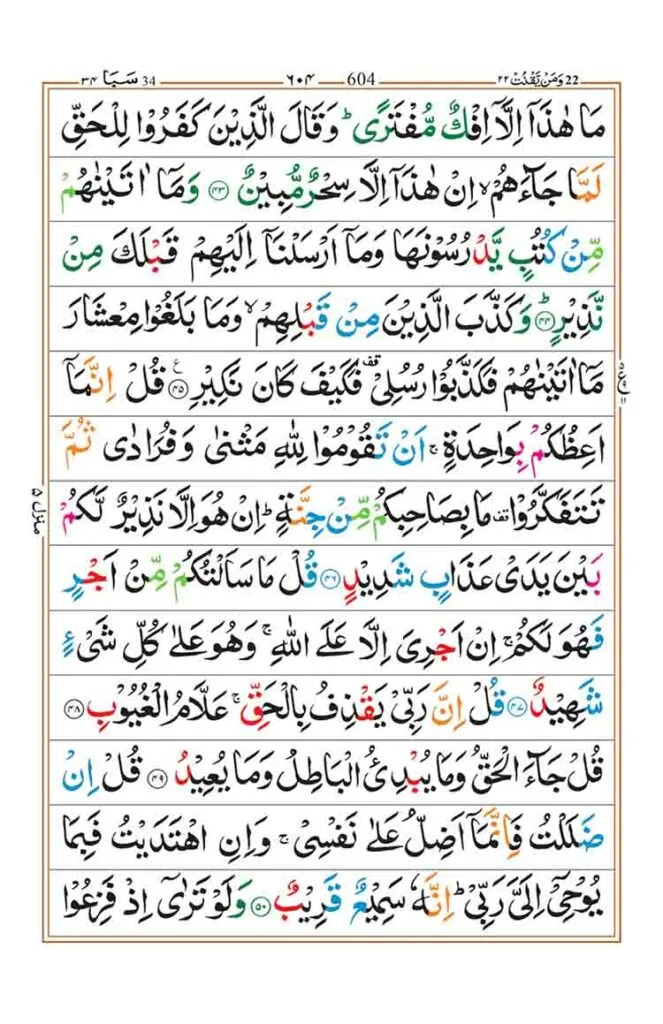 سَبَا ٣٤ 34 ٦٠٤ 604 وَمَنْ يَّقْنُتْ ٢٢ 22
مَا هٰذَاۤ اِلَّاۤ اِفْكٌ مُّفْتَرًىؕ وَقَالَ الَّذِيْنَ كَفَرُوْا لِلْحَقِّ
لَمَّا جَآءَهُمْۙ اِنْ هٰذَاۤ اِلَّا سِحْرٌ مُّبِيْنٌ ﴿٤٣﴾ وَمَاۤ اٰتَيْنٰهُمْ
مِّنْ كُتُبٍ يَّدْرُسُوْنَهَا وَمَاۤ اَرْسَلْنَاۤ اِلَيْهِمْ قَبْلَكَ مِنْ
نَّذِيْرٍؕ ﴿٤٤﴾ وَكَذَّبَ الَّذِيْنَ مِنْ قَبْلِهِمْۙ وَمَا بَلَغُوْا مِعْشَارَ
مَاۤ اٰتَيْنٰهُمْ فَكَذَّبُوْا رُسُلِيْ قف فَكَيْفَ كَانَ نَكِيْرِ ﴿٤٥﴾ ع قُلْ اِنَّمَاۤ
اَعِظُكُمْ بِوَاحِدَةٍۚ اَنْ تَقُوْمُوْا لِلّٰهِ مَثْنٰى وَفُرَادٰى ثُمَّ
تَتَفَكَّرُوْا قف مَا بِصَاحِبِكُمْ مِّنْ جِنَّةٍؕ اِنْ هُوَ اِلَّا نَذِيْرٌ لَّكُمْ
بَيْنَ يَدَيْ عَذَابٍ شَدِيْدٍ ﴿٤٦﴾ قُلْ مَا سَاَلْتُكُمْ مِّنْ اَجْرٍ
فَهُوَ لَكُمْؕ اِنْ اَجْرِيَ اِلَّا عَلَى اللّٰهِۚ وَهُوَ عَلٰى كُلِّ شَيْءٍ
شَهِيْدٌ ﴿٤٧﴾ قُلْ اِنَّ رَبِّيْ يَقْذِفُ بِالْحَقِّۚ عَلَّامُ الْغُيُوْبِ ﴿٤٨﴾
قُلْ جَآءَ الْحَقُّ وَمَا يُبْدِئُ الْبَاطِلُ وَمَا يُعِيْدُ ﴿٤٩﴾ قُلْ اِنْ
ضَلَلْتُ فَاِنَّمَاۤ اَضِلُّ عَلٰى نَفْسِيْۚ وَاِنِ اهْتَدَيْتُ فَبِمَا
يُوْحِيْۤ اِلَيَّ رَبِّيْؕ اِنَّهٗ سَمِيْعٌ قَرِيْبٌ ﴿٥٠﴾ وَلَوْ تَرٰۤى اِذْ فَزِعُوْا
منزل ٥